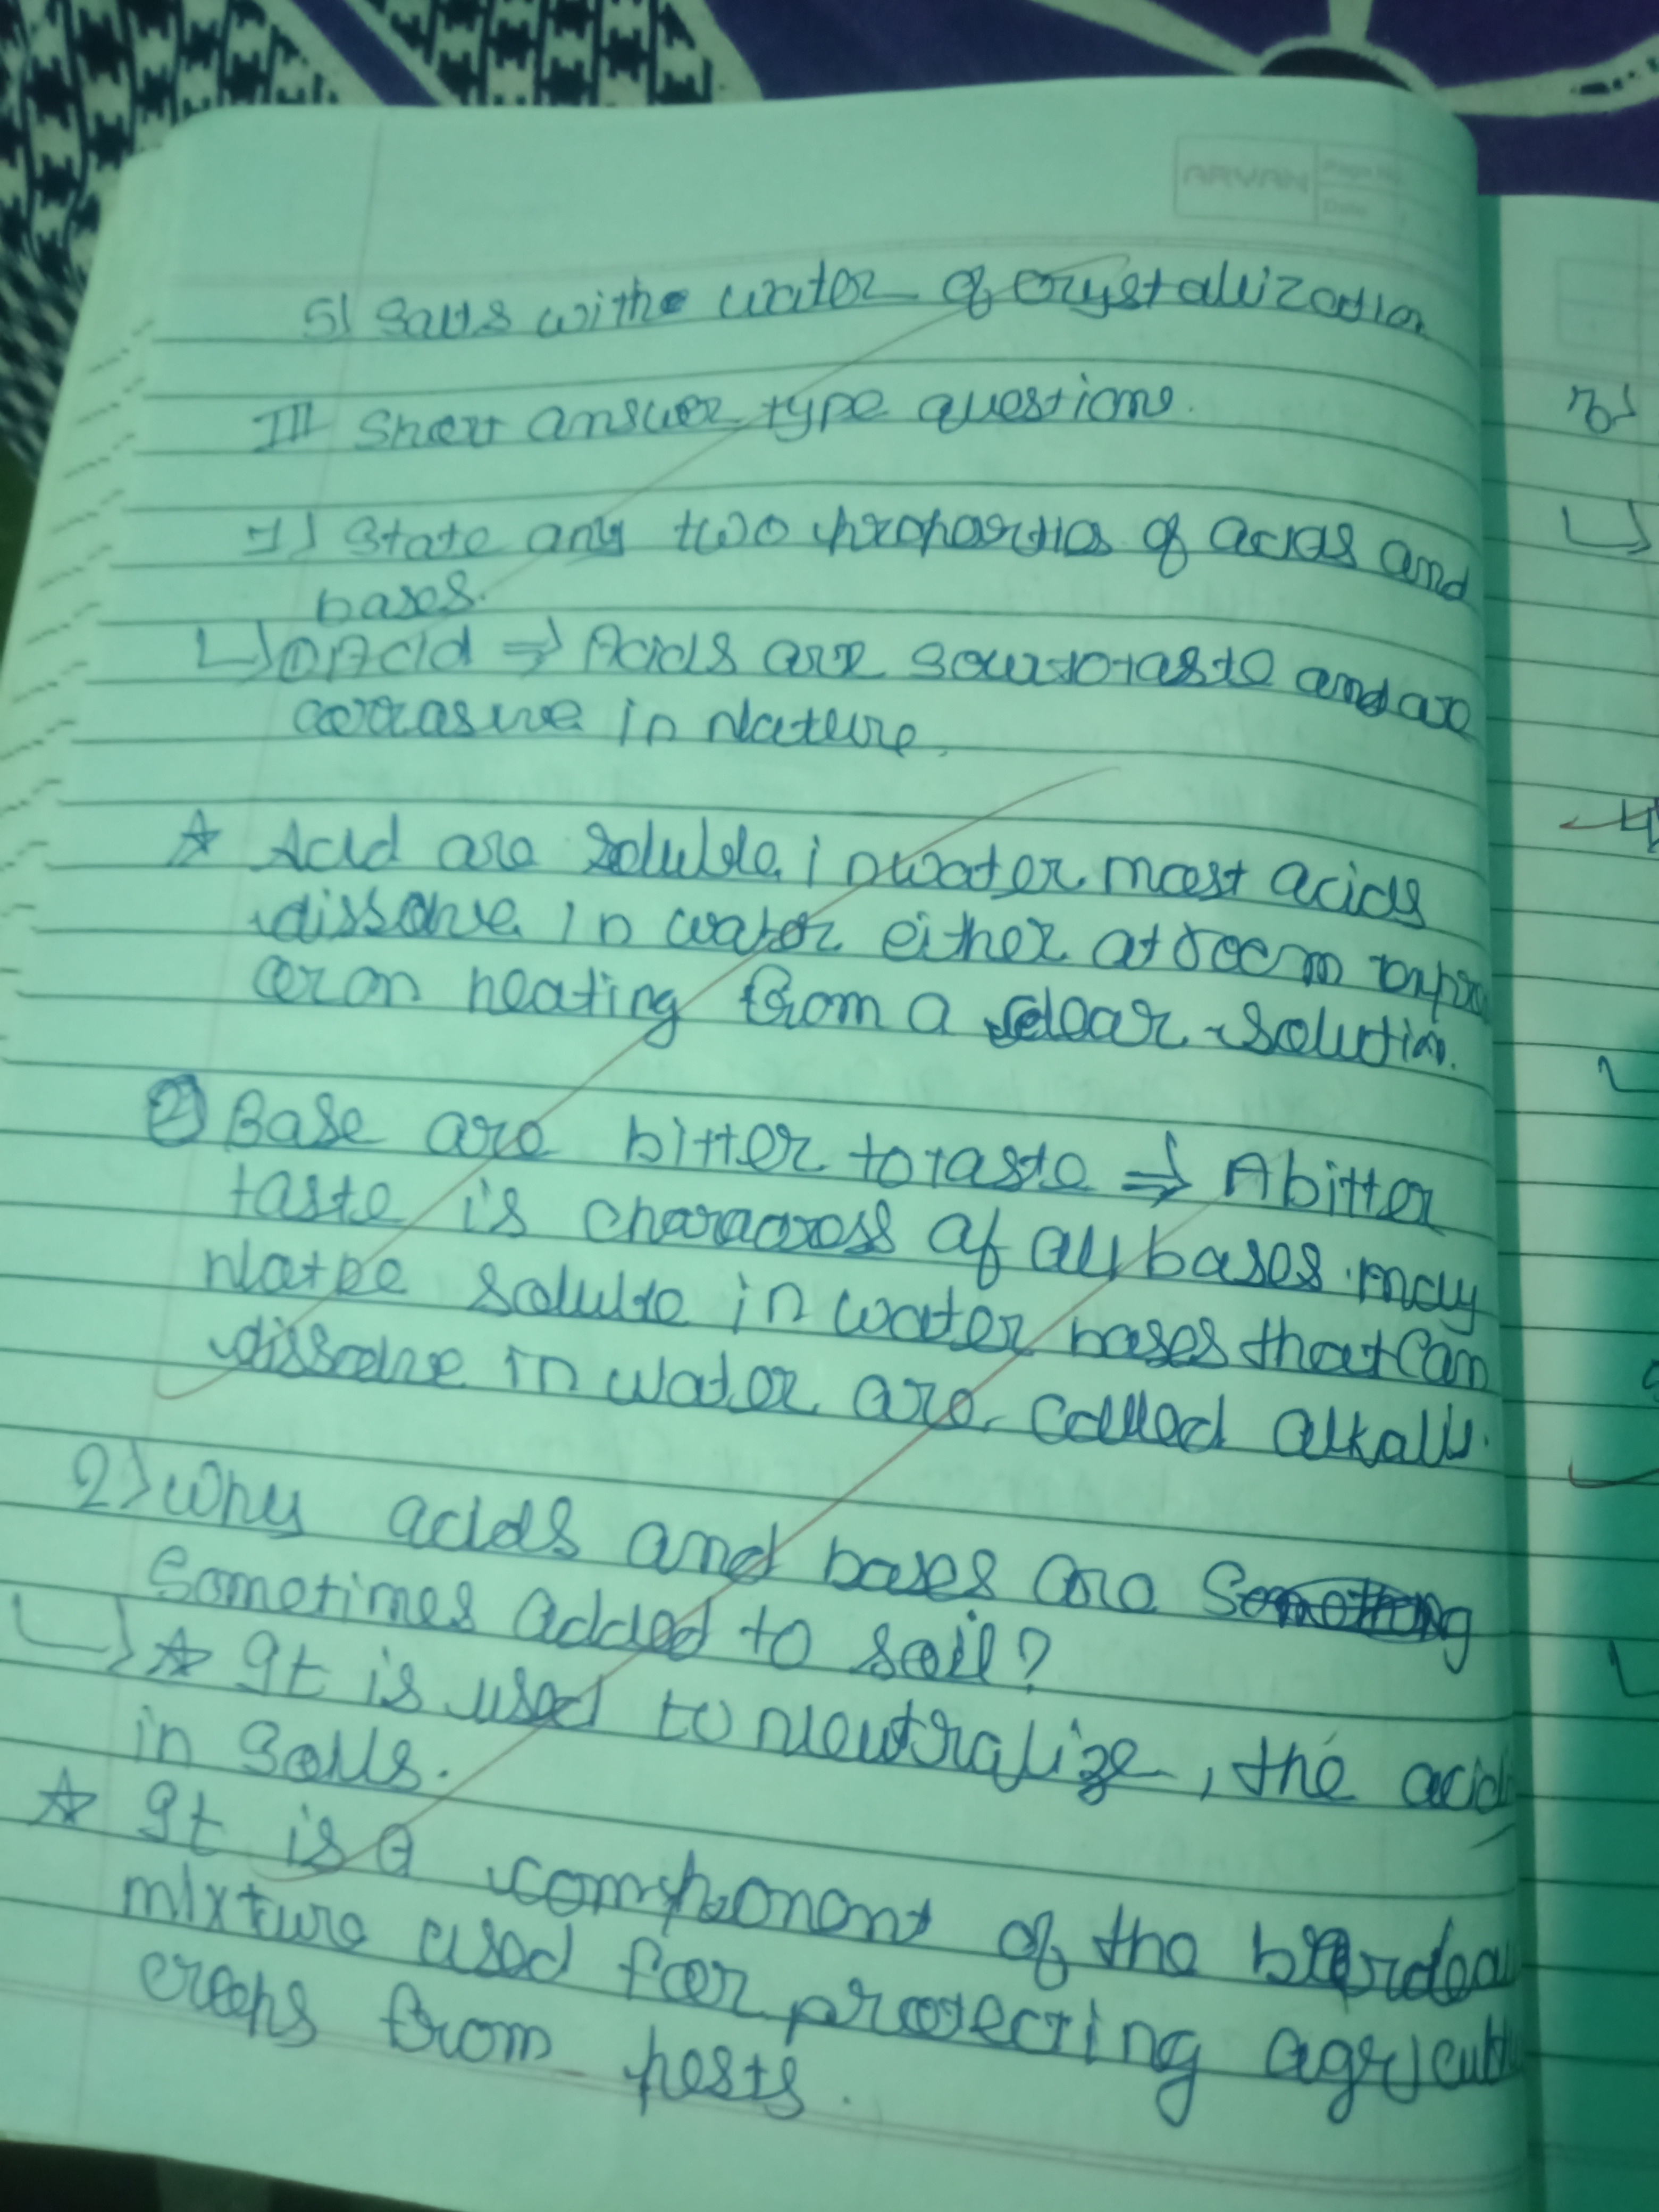 ARYAN Page No.
Date /
5) Salts with water of crystallization
III Short answer type questions.
1) State any two properties of acids and
bases.
① Acid ⇒ Acids are sour to taste and are
corrosive in Nature.
☆ Acid are soluble in water most acids
dissolve in water either at room
or on heating from a clear solution.
② Base are bitter to taste ⇒ A bitter
taste is of all bases may
Not be soluble in water bases that can
dissolve in water are called alkalis.
2) Why acids and bases are
Sometimes added to soil?
☆ It is used to Neutralize, the acid
in Soils.
☆ It is a component of the
mixture used for protecting
crops from pests.